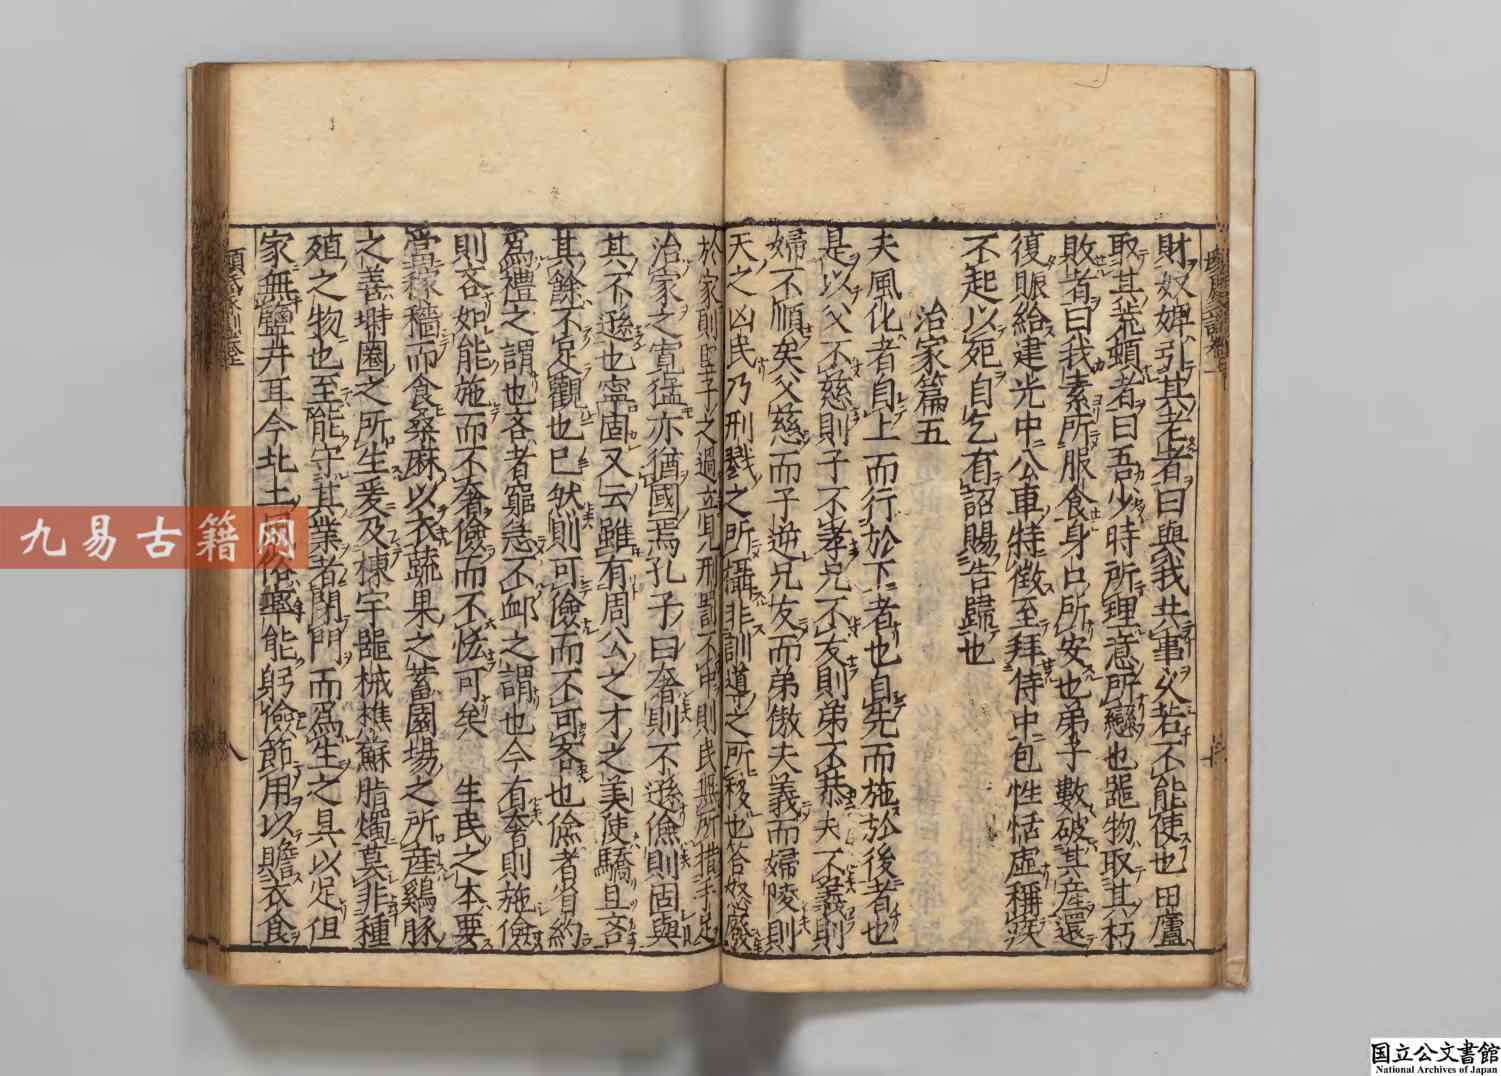 財奴婢引其老者曰與我共事久若不能使也田廬
取其荒頓者曰吾少時所理意所戀也器物取其朽
敗者曰我素所服食身口所安也弟子數破其產還
復賑給建光中公車特徵至拜侍中包性恬虛稱疾
不起以死自乞有詔賜告歸也
治家篇五
夫風化者自上而行於下者也自先而施於後者也
是以父不慈則子不孝兄不友則弟不恭夫不義則
婦不順矣父慈而子逆兄友而弟傲夫義而婦陵則
天之凶民乃刑戮之所攝非訓導之所移也笞怒廢
於家則豎子之過立見刑罰不中則民無所措手足
治家之寬猛亦猶國焉孔子曰奢則不遜儉則固與
其不遜也寧固又云雖有周公之才之美使驕且吝
其餘不足觀也已然則可儉而不可吝也儉者省約
爲禮之謂也吝者窮急不卹之謂也今有奢則施儉
則吝如能施而不奢儉而不恡可矣 生民之本要
當稼穡而食桑麻以衣蔬果之蓄園場之所產鷄豚
之善塒圈之所生爰及棟宇器械樵蘇脂燭莫非種
殖之物也至能守其業者閉門而爲生之具以足但
家無鹽井耳今北土風俗率能躬儉節用以贍衣食
八
九易古籍网
国立公文書館
National Archives of Japan